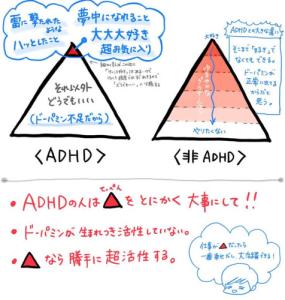 雷に撃たれたような
ハッとしたこと
夢中になれること
大大大好き
超お気に入り
それ以外
どうでもいい
(ドーパミン不足だから)
<ADHD>
ADHDとの大きな違い
大好き
そこまで「好きすぎ」
なくてもできる。
ドーパミンが
正常に出てる
からだと
思う。
やりたくない
<非ADHD>
・ADHDの人はてっぺんをとにかく大事にして!!
・ドーパミンが生まれつき活性していない。
・なら勝手に超活性する。
仕事がだったら
一番幸せだし、大活躍する!